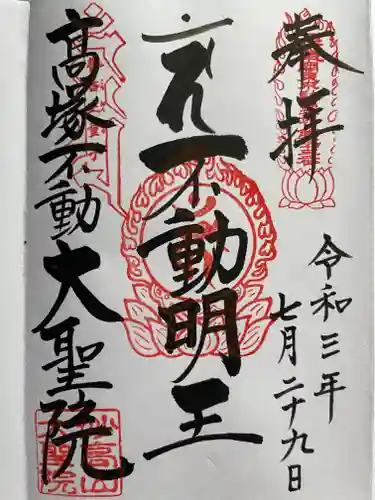 奉拝
令和三年
七月二十九日
不動明王
髙塚不動
大聖院